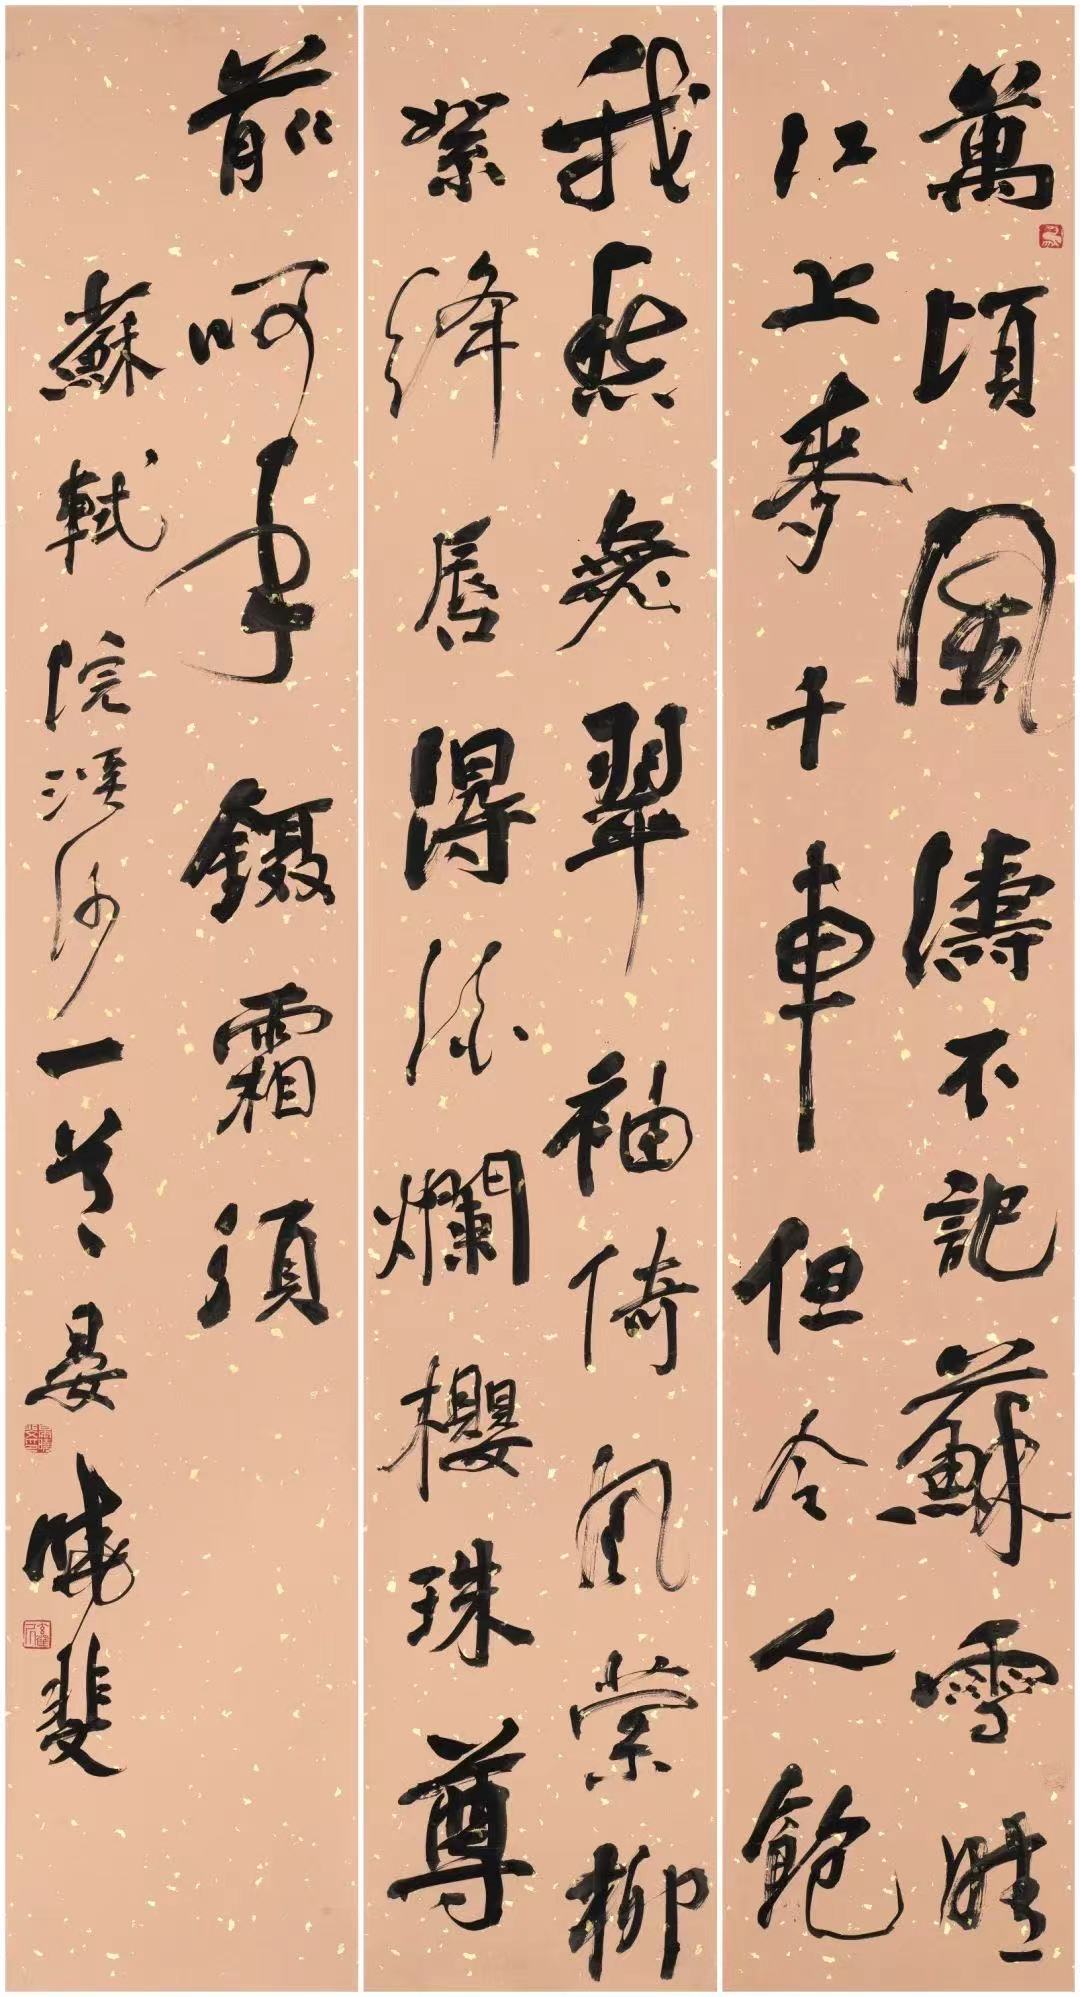 萬頃風濤不記蘇雪晴
江上麥千車但令人飽
我愁無翠袖倚風縈柳
絮絳唇得酒爛櫻珠尊
前呵手鑷霜須
蘇軾浣溪沙一首晏曉斐